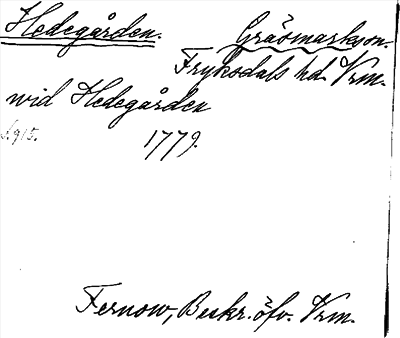 Hedegården. Gräsmarks sn.
Fryksdals hd. Vrm.
wid Hedegården
S. 915. 1779.
Fernow, Beskr. öfv. Vrm.